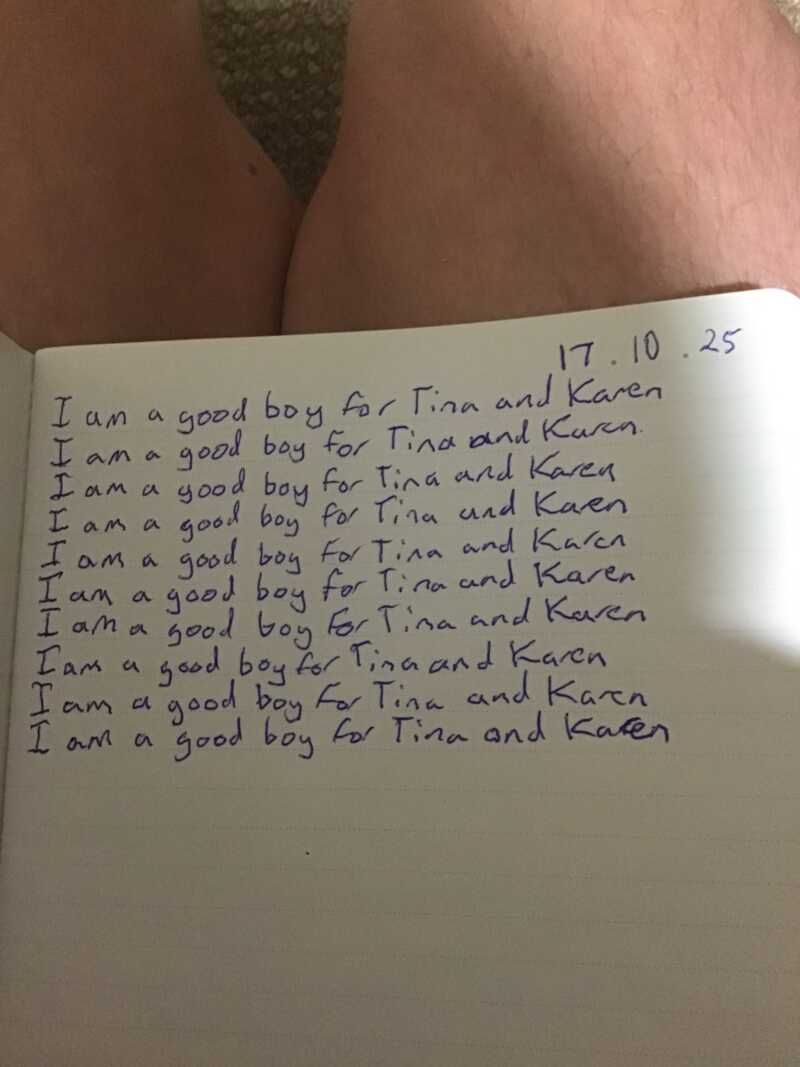 17.10.25
I am a good boy for Tina and Karen
I am a good boy for Tina and Karen.
I am a good boy for Tina and Karen
I am a good boy for Tina and Karen
I am a good boy for Tina and Karen
I am a good boy for Tina and Karen
I am a good boy for Tina and Karen
I am a good boy for Tina and Karen
I am a good boy for Tina and Karen
I am a good boy for Tina and Karen